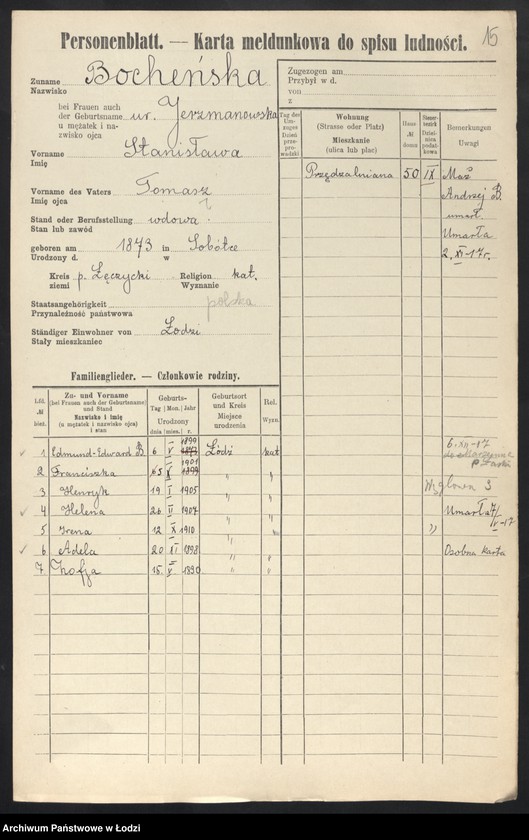 15
Personenblatt. — Karta meldunkowa do spisu ludności.
Zuname Bocheńska
Nazwisko
bei Frauen auch
der Geburtsname ur. Jerzmanowska
u mężatek i na-
zwisko ojca
Vorname Stanisława
Imię
Vorname des Vaters Tomasz
Imię ojca
Stand oder Berufsstellung wdowa
Stan lub zawód
geboren am 1873 in Sobótce
Urodzony d. w
Kreis p. Łęczycki Religion kat.
ziemi Wyznanie
Staatsangehörigkeit polska
Przynależność państwowa
Ständiger Einwohner von Łodzi
Stały mieszkaniec
Zugezogen am
Przybył w d.
von
z
Tag des Um-zuges Dzień prze-pro-wadzki
Wohnung (Strasse oder Platz) Mieszkanie (ulica lub plac)
Haus № domu
Steuer-bezirk Dzielnica podat-kowa
Bemerkungen Uwagi
Przędzalniana 50 IX Mąż
Andrzej B.
umarł.
Umarła
2. XI-17 r.
Familienglieder. — Członkowie rodziny.
Lfd. № bież.
Zu- und Vorname (bei Frauen auch der Geburtsname) und Stand Nazwisko i imię (u mężatek i nazwisko ojca) i stan
Geburts- Tag Mon. Jahr Urodzony dnia mies. r.
Geburtsort und Kreis Miejsce urodzenia
Rel. Wyzn.
1 Edmund-Edward B. 6 V 1899 Łódź kat. 6. XII-17
2 Franciszka 1901 " "
3 Henryk 19 I 1905 " "
4 Helena 26 II 1907 " " Umarła
5 Irena 12 X 1910 " "
6 Adela 20 XI 1898 " " Osobna karta
7 Zofja 15 V 1890 " "
Archiwum Państwowe w Łodzi